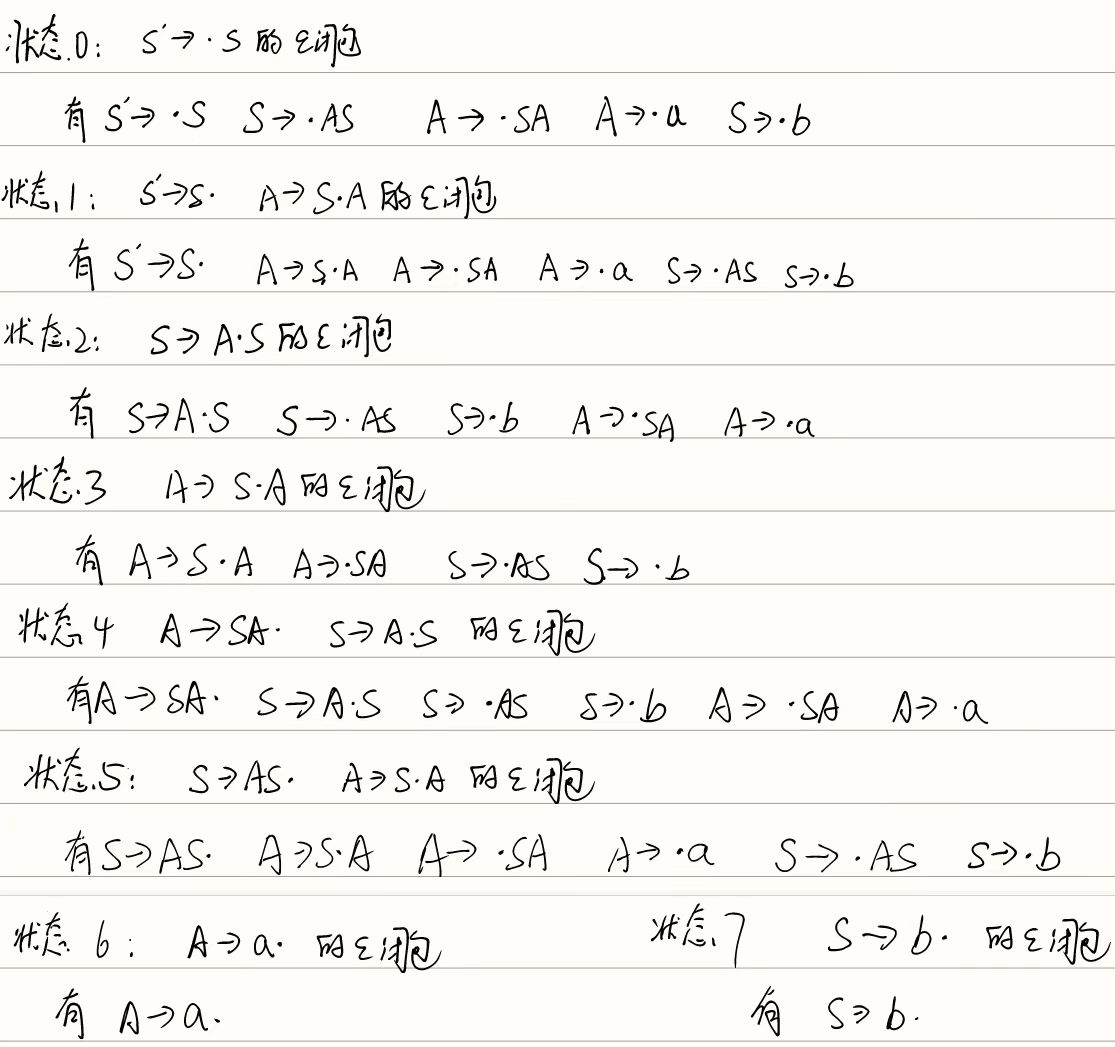 状态0: S'→·S 的 ε闭包
有 S'→·S S→·AS A→·SA A→·a S→·b
状态1: S'→S· A→S·A 的ε闭包
有 S'→S· A→S·A A→·SA A→·a S→·AS S→·b
状态2: S→A·S 的ε闭包
有 S→A·S S→·AS S→·b A→·SA A→·a
状态3 A→S·A 的ε闭包
有 A→S·A A→·SA S→·AS S→·b
状态4 A→SA· S→A·S 的ε闭包
有A→SA· S→A·S S→·AS S→·b A→·SA A→·a
状态5: S→AS· A→S·A 的ε闭包
有S→AS· A→S·A A→·SA A→·a S→·AS S→·b
状态 6: A→a· 的ε闭包 状态7 S→b· 的ε闭包
有 A→a· 有 S→b·